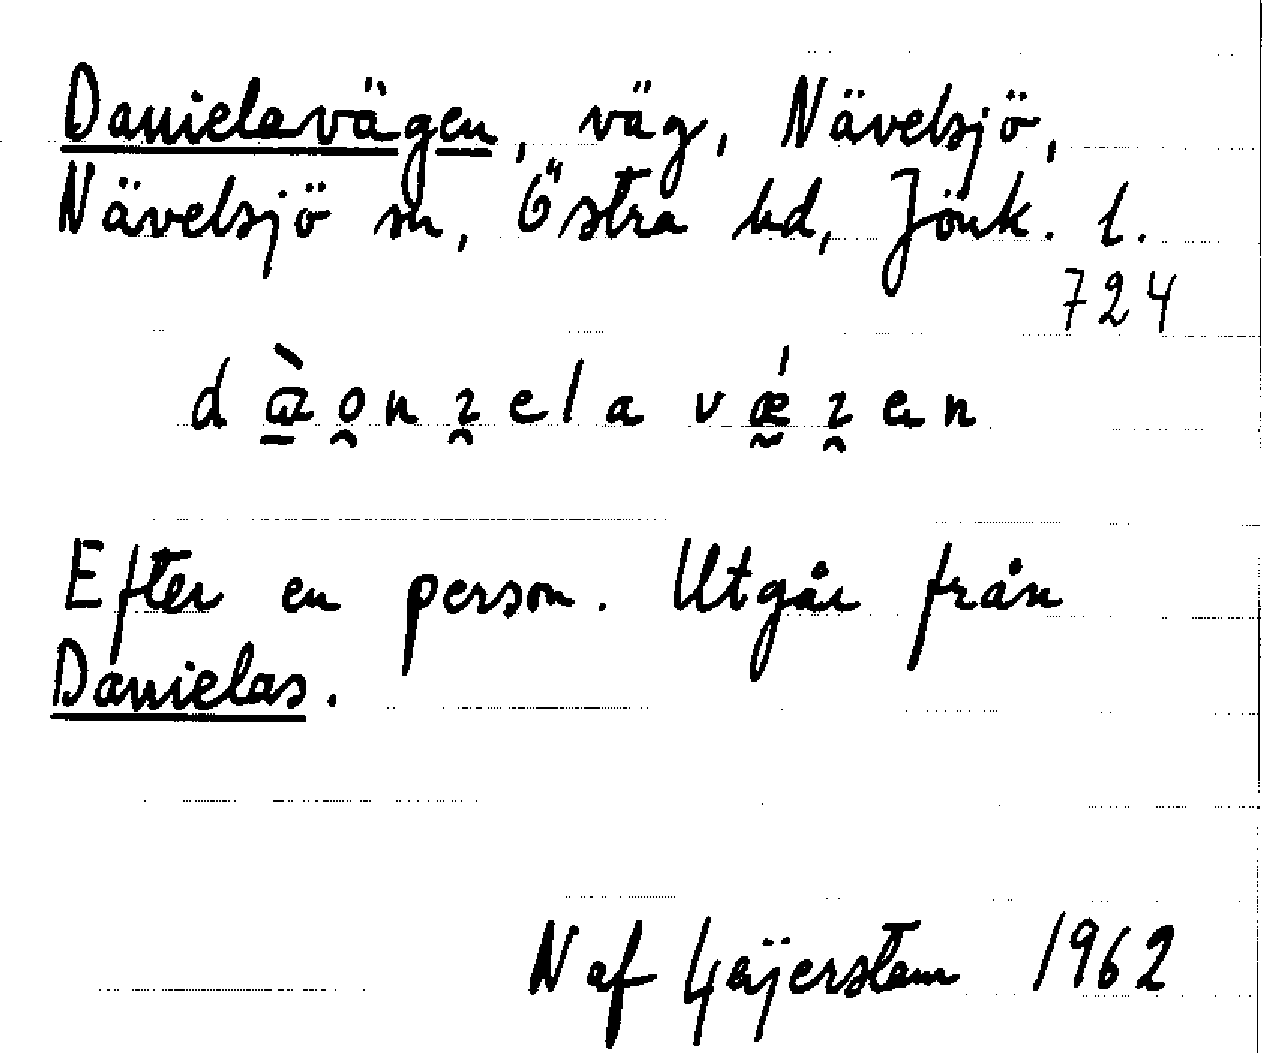 Danielavägen, väg, Nävelsjö,
Nävelsjö sn, Östra hd, Jönk. l.
724
Efter en person. Utgår från
Danielas.
N af Geijerstam 1962